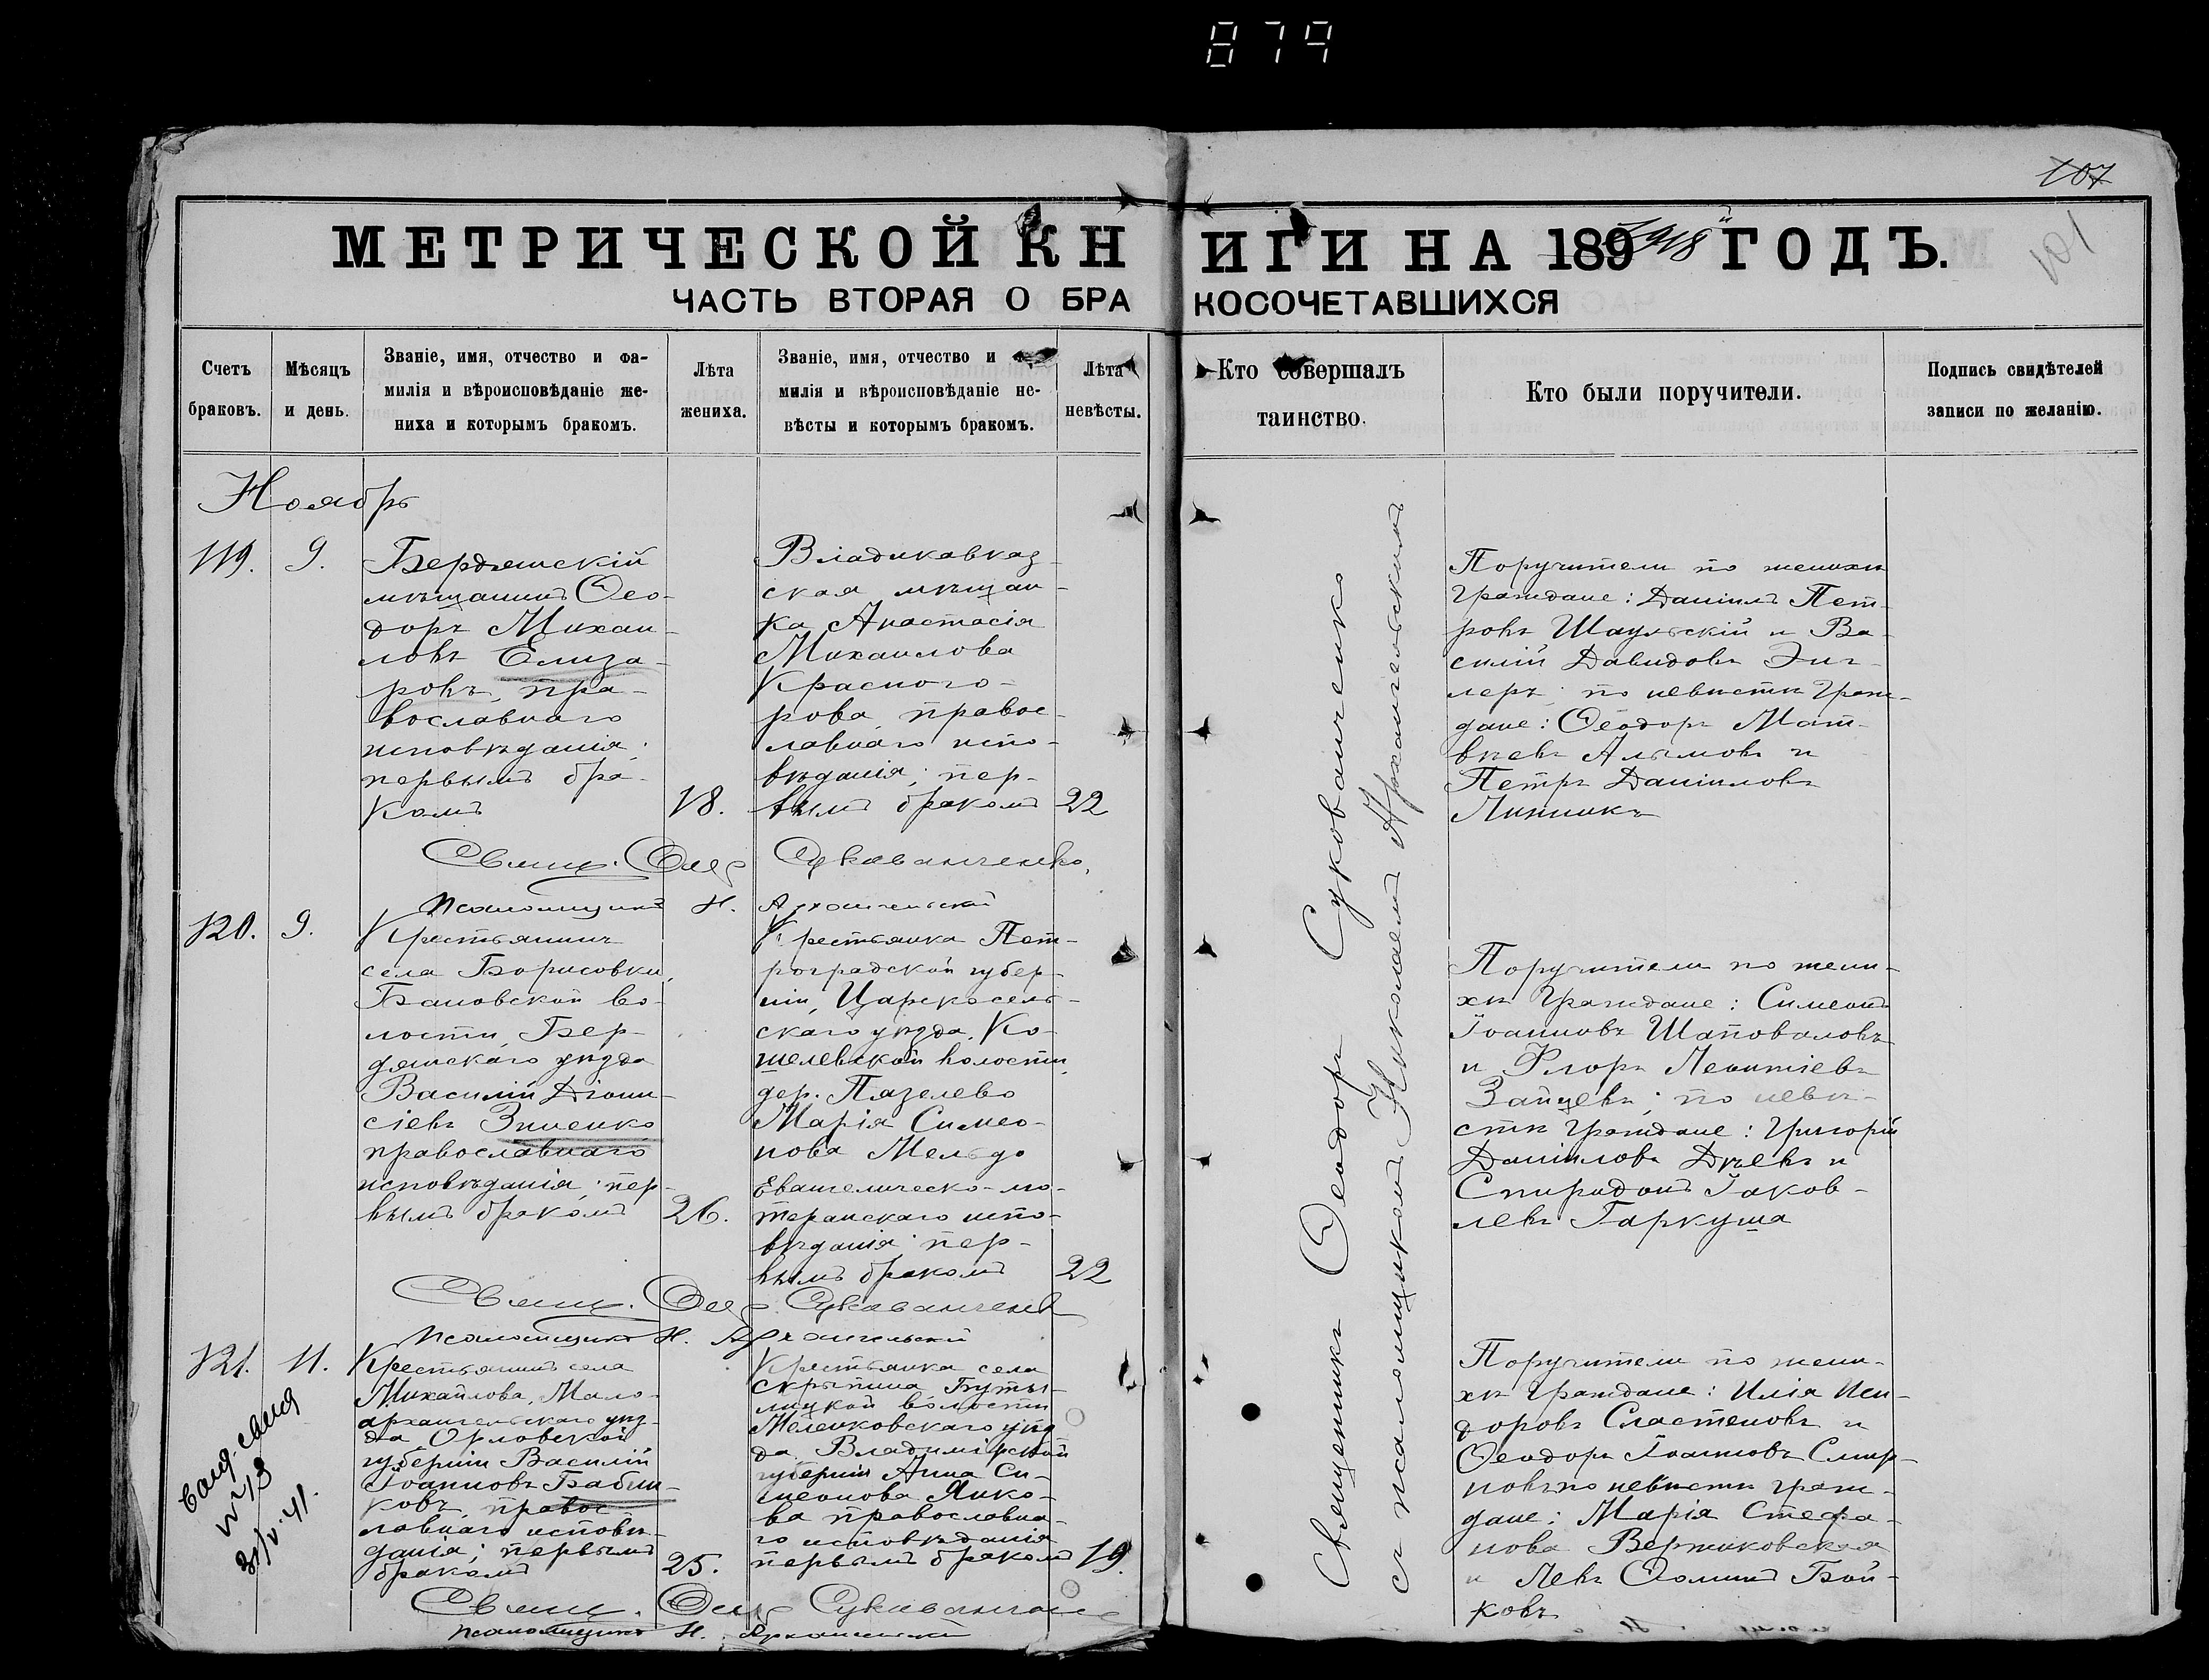 879
107
101
МЕТРИЧЕСКОЙ КНИГИ НА 1891918й ГОДЪ.
ЧАСТЬ ВТОРАЯ О БРАКОСОЧЕТАВШИХСЯ
Счетъ браковъ.
Мѣсяцъ и день.
Званіе, имя, отчество и фа-
милія и вѣроисповѣданіе же-
ниха и которымъ бракомъ.
Лѣта
жениха.
Званіе, имя, отчество и
милія и вѣроисповѣданіе не-
вѣсты и которымъ бракомъ.
Лѣта
невѣсты.
Кто совершалъ
таинство.
Кто были поручители.
Подпись свидѣтелей
записи по желанію.
Ноябрь
119. 9.
Бердянскій
мѣщанинъ Ѳео-
доръ Михаи-
ловъ Елиза-
ровъ, пра-
вославнаго
исповѣданія;
первымъ бра-
комъ
18.
Владикавказ-
ская мѣщан-
ка Анастасія
Михаилова
Красного-
рова, правос-
лавнаго испо-
вѣданія; пер-
вымъ бракомъ
22
Поручители по женихѣ
Граждане: Даніилъ Пет-
ровъ Шаульскій и Ва-
силій Давидовъ Энг-
леръ; по невѣстѣ Граж-
дане: Ѳеодоръ Мат-
вѣевъ Алымовъ и
Петръ Данииловъ
Линникъ
Свящ. Ѳеод. Сукованченко,
Псаломщикъ Н. Архангельскій
120. 9.
Крестьянинъ
села Борисовки,
Бановской во-
лости, Бер-
дянскаго уѣзда
Василій Діони-
сіевъ Зиненко
православнаго
исповѣданія; пер-
вымъ бракомъ
26.
Крестьянка Пет-
роградской губер-
ніи, Царскосель-
скаго уѣзда, Ко-
шелевской волости,
дер. Пязелево
Марія Симео-
нова Мельдо
Евангелическо-лю-
теранскаго испо-
вѣданія; пер-
вымъ бракомъ
22
Поручители по жени-
хѣ Граждане: Симеонъ
Іоанновъ Шаповаловъ
и Флоръ Леонтіевъ
Зайцевъ; по невѣ-
стѣ Граждане: Григорій
Данииловъ Дѣевъ и
Спиридонъ Іаков-
левъ Гаркуша
Свящ. Ѳеод. Сукованченко
Псаломщикъ Н. Архангельскій
121. 11.
Крестьянинъ села
Михайлова, Мало-
архангельскаго уѣз-
да Орловской
губерніи Василій
Іоанновъ Бабин-
ковъ, правос-
лавнаго исповѣ-
данія; первымъ
бракомъ
25.
Крестьянка села
Скрыпина, Буты-
лицкой волости
Меленковскаго уѣз-
да Владимірской
губерніи Анна Си-
меонова Янко-
ва православна-
го исповѣданія
первымъ бракомъ
19.
Поручители по жени-
хѣ Граждане: Илія Иси-
доровъ Сластеновъ и
Ѳеодоръ Іоанновъ Смир-
новъ; по невѣстѣ граж-
дане: Марія Стефа-
нова Вержиковская
и Левъ Ѳоминъ Бой-
ковъ
Свящ. Ѳеод. Сукованченко
Псаломщикъ Н. Архангельскій
Священникъ Ѳеодоръ Сукованченко
съ псаломщикомъ Николаемъ Архангельскимъ
31/V-41.